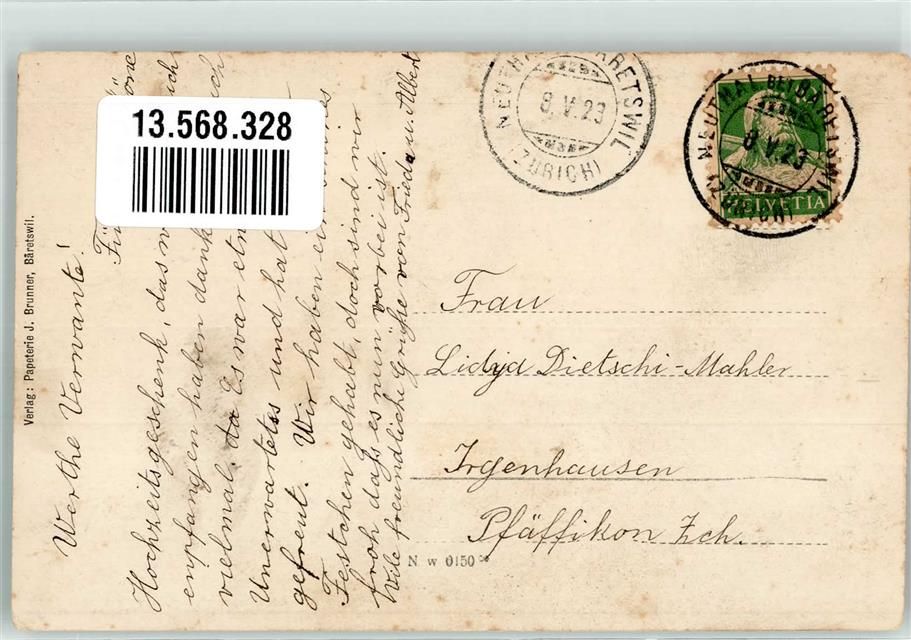 13.568.328
Verlag: Papeterie J. Brunner, Bäretswil.
Werthe Verwante!
Für
Hochzeitsgeschenk, das
empfangen haben dank
vielmal. da Es war etw
Unerwartetes und hat
gefreut. Wir haben ein
Festchen gehabt, doch sind wir
froh daß es nun vorbei ist.
Viele freundliche Grüße von Frieda u. Albert
NEUTHAL BÄRETSWIL
8.V.23
(ZÜRICH)
NEUTHAL BEI BÄRETSWIL
8.V.23
(ZÜRICH)
HELVETIA
Frau
Lidyd Dietschi-Mahler
Irgenhausen
Pfäffikon Zch.
N w 0150